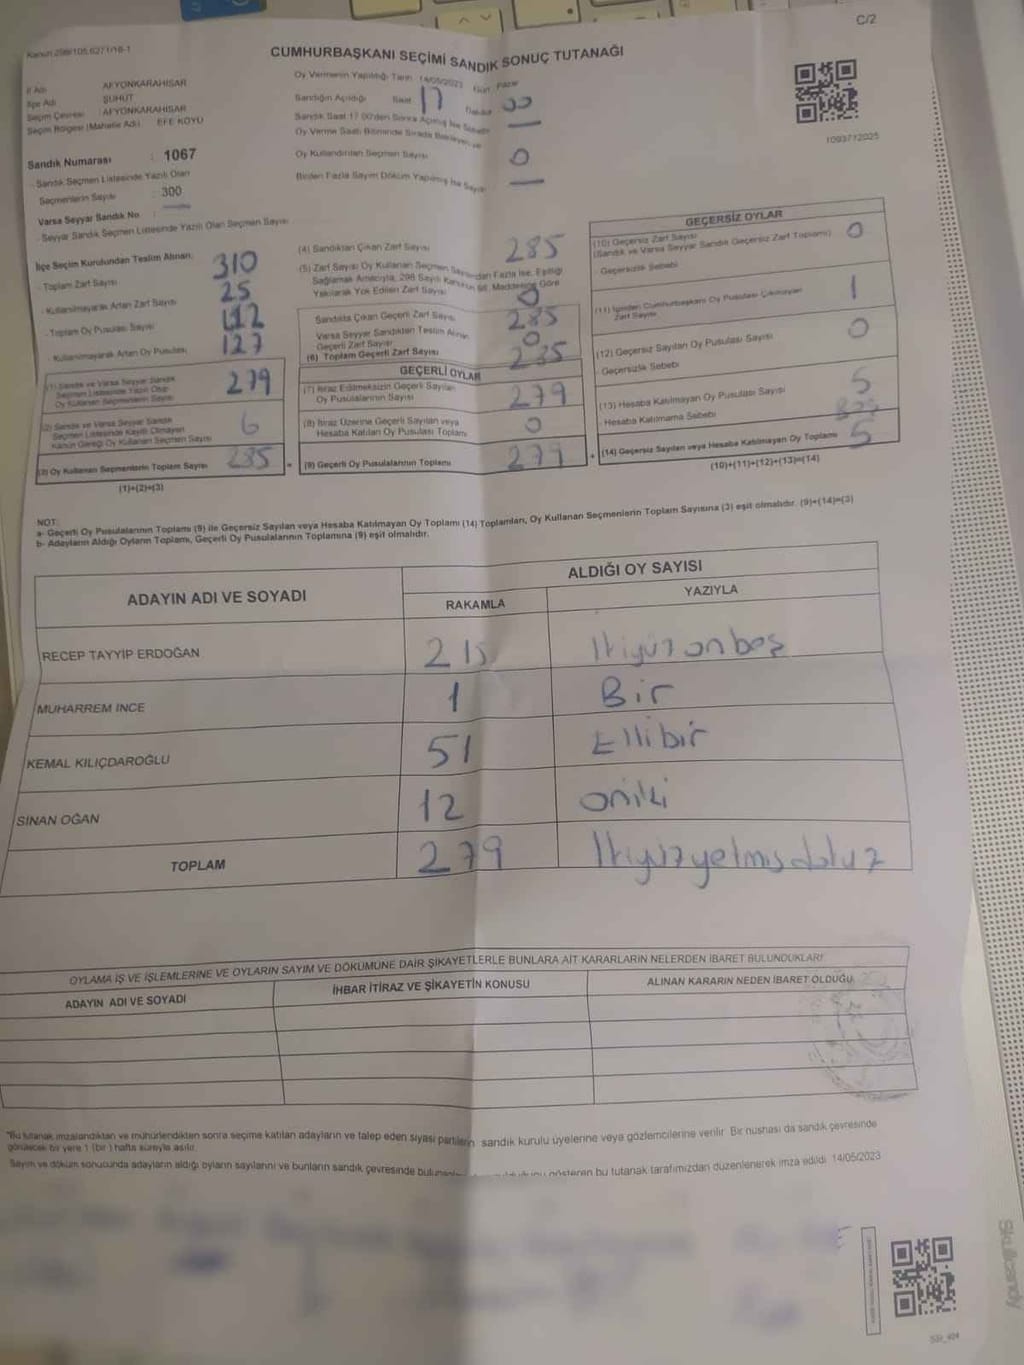 C/2
Kanun:298/105,6271/16-1
CUMHURBAŞKANI SEÇİMİ SANDIK SONUÇ TUTANAĞI
İl Adı AFYONKARAHİSAR
İlçe Adı ŞUHUT
Seçim Çevresi : AFYONKARAHİSAR
Seçim Bölgesi (Mahalle Adı) EFE KÖYÜ
Sandık Numarası : 1067
- Sandık Seçmen Listesinde Yazılı Olan
Seçmenlerin Sayısı : 300
Varsa Seyyar Sandık No
- Seyyar Sandık Seçmen Listesinde Yazılı Olan Seçmen Sayısı
Oy Vermenin Yapıldığı Tarih 14/05/2023 Gün Pazar
Sandığın Açıldığı Saat 17 Dakika 00
Sandık Saat 17 00'den Sonra Açılmış İse Sebebi
Oy Verme Saati Bitiminde Sırada Bekleyen ve
Oy Kullandırılan Seçmen Sayısı 0
Birden Fazla Sayım Döküm Yapılmış İse Sayısı
1093772025
İlçe Seçim Kurulundan Teslim Alınan:
- Toplam Zarf Sayısı 310
- Kullanılmayarak Artan Zarf Sayısı 25
- Toplam Oy Pusulası Sayısı
- Kullanılmayarak Artan Oy Pusulası 127
(1) Sandık ve Varsa Seyyar Sandık
Seçmen Listesinde Yazılı Olup
Oy Kullanan Seçmenlerin Sayısı 279
(2) Sandık ve Varsa Seyyar Sandık
Seçmen Listesinde Kayıtlı Olmayan
Kanun Gereği Oy Kullanan Seçmen Sayısı 6
(3) Oy Kullanan Seçmenlerin Toplam Sayısı 285
(1)+(2)=(3)
(4) Sandıktan Çıkan Zarf Sayısı 285
(5) Zarf Sayısı Oy Kullanan Seçmen Sayısından Fazla İse, Eşitliği
Sağlamak Amacıyla, 298 Sayılı Kanunun 98. Maddesine Göre
Yakılarak Yok Edilen Zarf Sayısı 0
Sandıkta Çıkan Geçerli Zarf Sayısı 285
Varsa Seyyar Sandıktan Teslim Alınan
Geçerli Zarf Sayısı 0
(6) Toplam Geçerli Zarf Sayısı 285
GEÇERLİ OYLAR
(7) İtiraz Edilmeksizin Geçerli Sayılan
Oy Pusulasının Sayısı 279
(8) İtiraz Üzerine Geçerli Sayılan veya
Hesaba Katılan Oy Pusulası Toplamı 0
(9) Geçerli Oy Pusulalarının Toplamı 279
GEÇERSİZ OYLAR
(10) Geçersiz Zarf Sayısı 0
(Sandık ve Varsa Seyyar Sandık Geçersiz Zarf Toplamı)
Geçersizlik Sebebi
(11) İçinden Cumhurbaşkanı Oy Pusulası Çıkmayan 1
Zarf Sayısı
(12) Geçersiz Sayılan Oy Pusulası Sayısı 0
Geçersizlik Sebebi
(13) Hesaba Katılmayan Oy Pusulası Sayısı 5
Hesaba Katılmama Sebebi
(14) Geçersiz Sayılan veya Hesaba Katılmayan Oy Toplamı 5
(10)+(11)+(12)+(13)=(14)
NOT:
a- Geçerli Oy Pusulalarının Toplamı (9) ile Geçersiz Sayılan veya Hesaba Katılmayan Oy Toplamı (14) Toplamları, Oy Kullanan Seçmenlerin Toplam Sayısına (3) eşit olmalıdır. (9)+(14)=(3)
b- Adayların Aldığı Oyların Toplamı, Geçerli Oy Pusulalarının Toplamına (9) eşit olmalıdır.
ADAYIN ADI VE SOYADI
ALDIĞI OY SAYISI
RAKAMLA YAZIYLA
RECEP TAYYİP ERDOĞAN 215 İkiyüzonbeş
MUHARREM İNCE 1 Bir
KEMAL KILIÇDAROĞLU 51 Ellibir
SİNAN OĞAN 12 oniki
TOPLAM 279 İkiyüzyetmişdokuz
OYLAMA İŞ VE İŞLEMLERİNE VE OYLARIN SAYIM VE DÖKÜMÜNE DAİR ŞİKAYETLERLE BUNLARA AİT KARARLARIN NELERDEN İBARET BULUNDUKLARI
ADAYIN ADI VE SOYADI İHBAR İTİRAZ VE ŞİKAYETİN KONUSU ALINAN KARARIN NEDEN İBARET OLDUĞU
*Bu tutanak imzalandıktan ve mühürlendikten sonra seçime katılan adayların ve talep eden siyasi partilerin sandık kurulu üyelerine veya gözlemcilerine verilir. Bir nüshası da sandık çevresinde
görülecek bir yere 1 (bir) hafta süreyle asılır.
Sayım ve döküm sonucunda adayların aldığı oyların sayılarını ve bunların sandık çevresinde gösteren bu tutanak tarafımızdan düzenlenerek imza edildi. 14/05/2023
Skullcandy